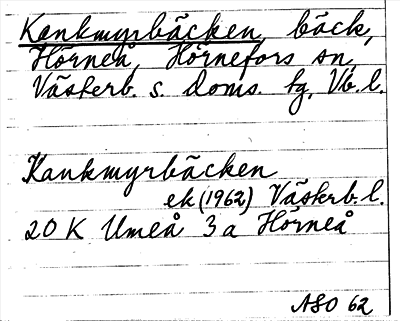 Kankmyrbäcken, bäck,
Hörneå, Hörnefors sn,
Västerb. s. doms. tg, Vb. l.
Kankmyrbäcken
ek (1962) Västerb. l.
20 K Umeå 3a Hörneå
ASO 62